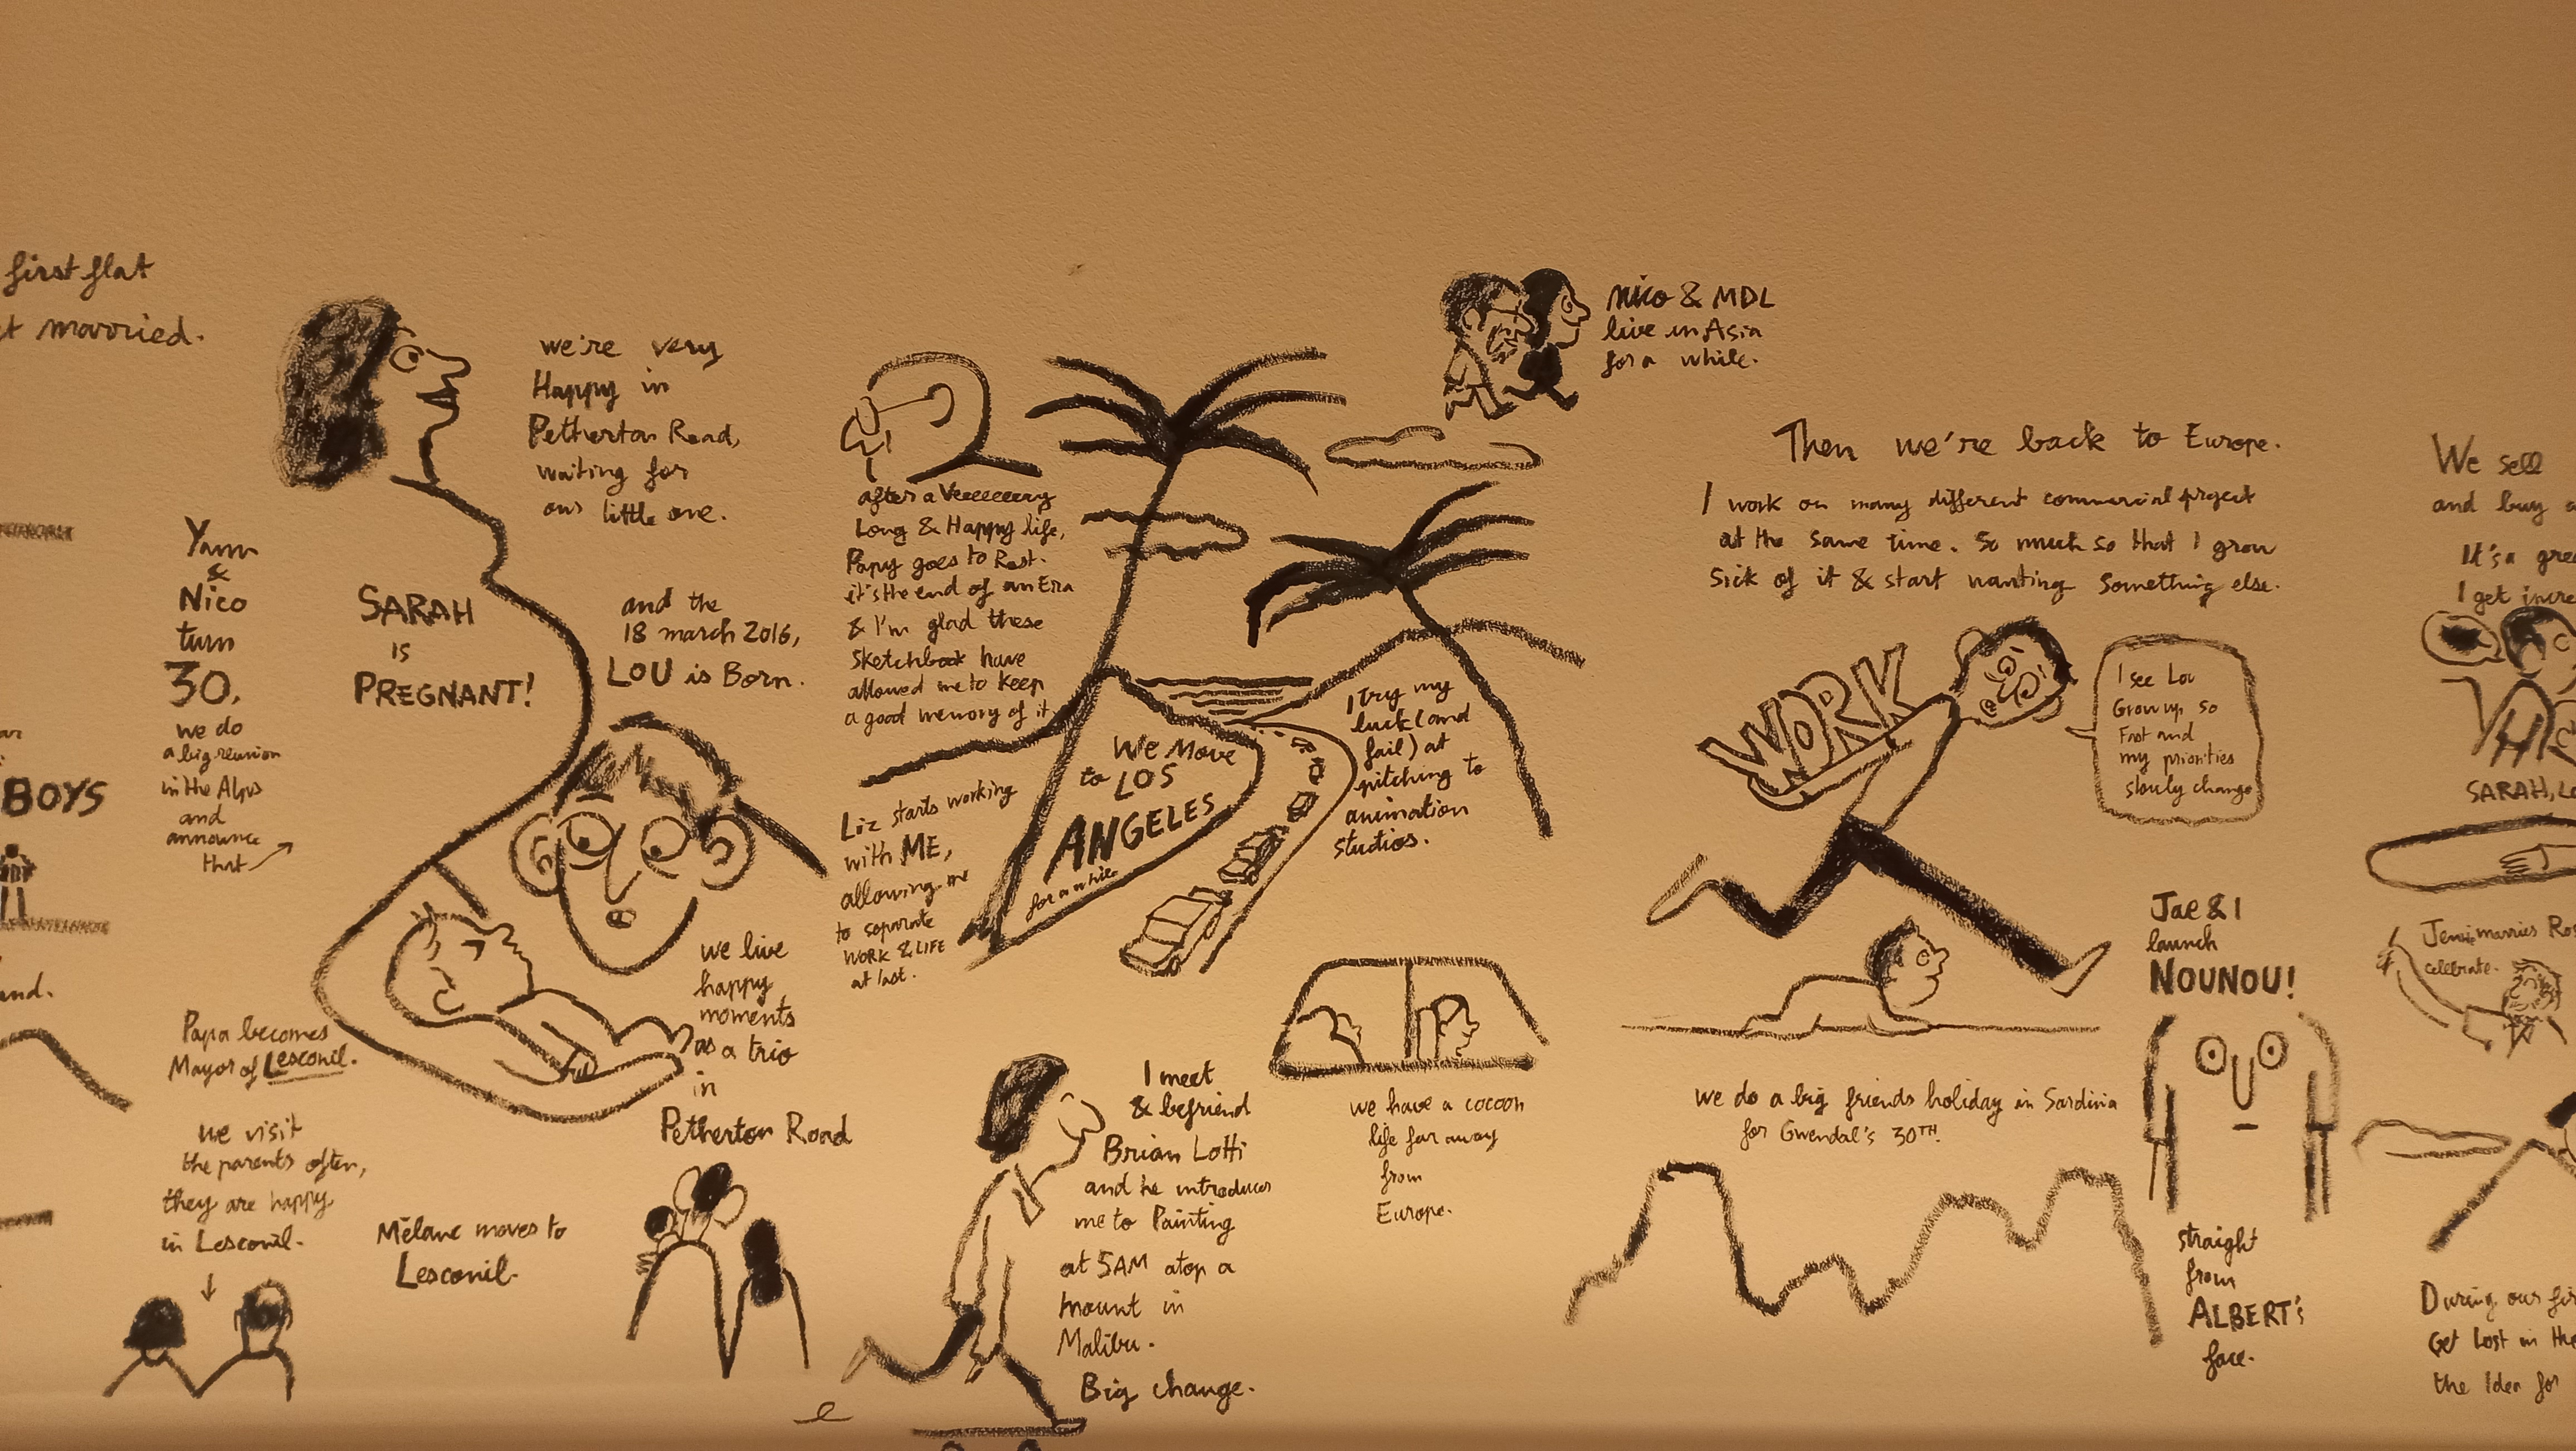 first flat
married.
BOYS
and.
Yann
&
Nico
turn
30.
we do
a big reunion
in the Alps
and
announce
that
SARAH
is
PREGNANT!
we're very
Happy in
Petherton Road,
waiting for
our little one.
and the
18 march 2016,
LOU is Born.
Papa becomes
Mayor of Lesconil.
we visit
the parents often,
they are happy
in Lesconil.
Mélanc moves to
Lesconil.
we live
happy
moments
as a trio
in
Petherton Road
after a Veeeeeeery
Long & Happy life,
Papy goes to Rest.
it's the end of an Era
& I'm glad these
sketchbook have
allowed me to keep
a good memory of it.
Liz starts working
with ME,
allowing me
to separate
WORK & LIFE
at last.
We Move
to LOS
ANGELES
for a while
I try my
luck (and
fail) at
pitching to
animation
studios.
I meet
& befriend
Brian Lotti
and he introduces
me to Painting
at 5AM atop a
mount in
Malibu.
Big change.
we have a cocoon
life far away
from
Europe.
Nico & MDL
live in Asia
for a while.
Then we're back to Europe.
I work on many different commercial project
at the same time. So much so that I grow
sick of it & start wanting something else.
WORK
I see Lou
Grow up so
Fast and
my priorities
slowly change
we do a big friends holiday in Sardinia
for Gwendal's 30TH.
Jae & I
launch
NOUNOU!
straight
from
ALBERT's
face.
We sell
and buy a
It's a
I get
SARAH,
Jenni marries
celebrate.
During our
Get Lost in
the Idea for